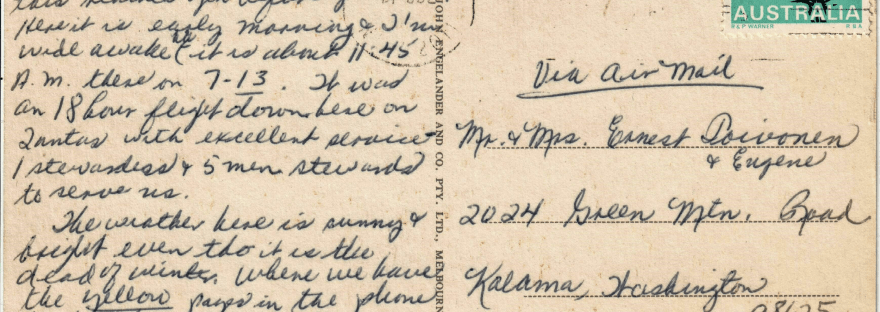 this reaches you
Here it is early morning & I'm
wide awake & it is about 11:45
A.M. there on 7-13. It was
an 18 hour flight down here on
Qantas with excellent service
1 stewardess & 5 men stewards
to serve us.
The weather here is sunny &
bright even tho it is the
dead of winter. Where we have
the yellow pages in the phone
JOHN ENGELANDER AND CO. PTY. LTD., MELBOURN
AUSTRALIA
Via Air Mail
Mr. & Mrs. Ernest Poivonen
& Eugene
2024 Green Mtn. Road
Kalama, Washington
98625